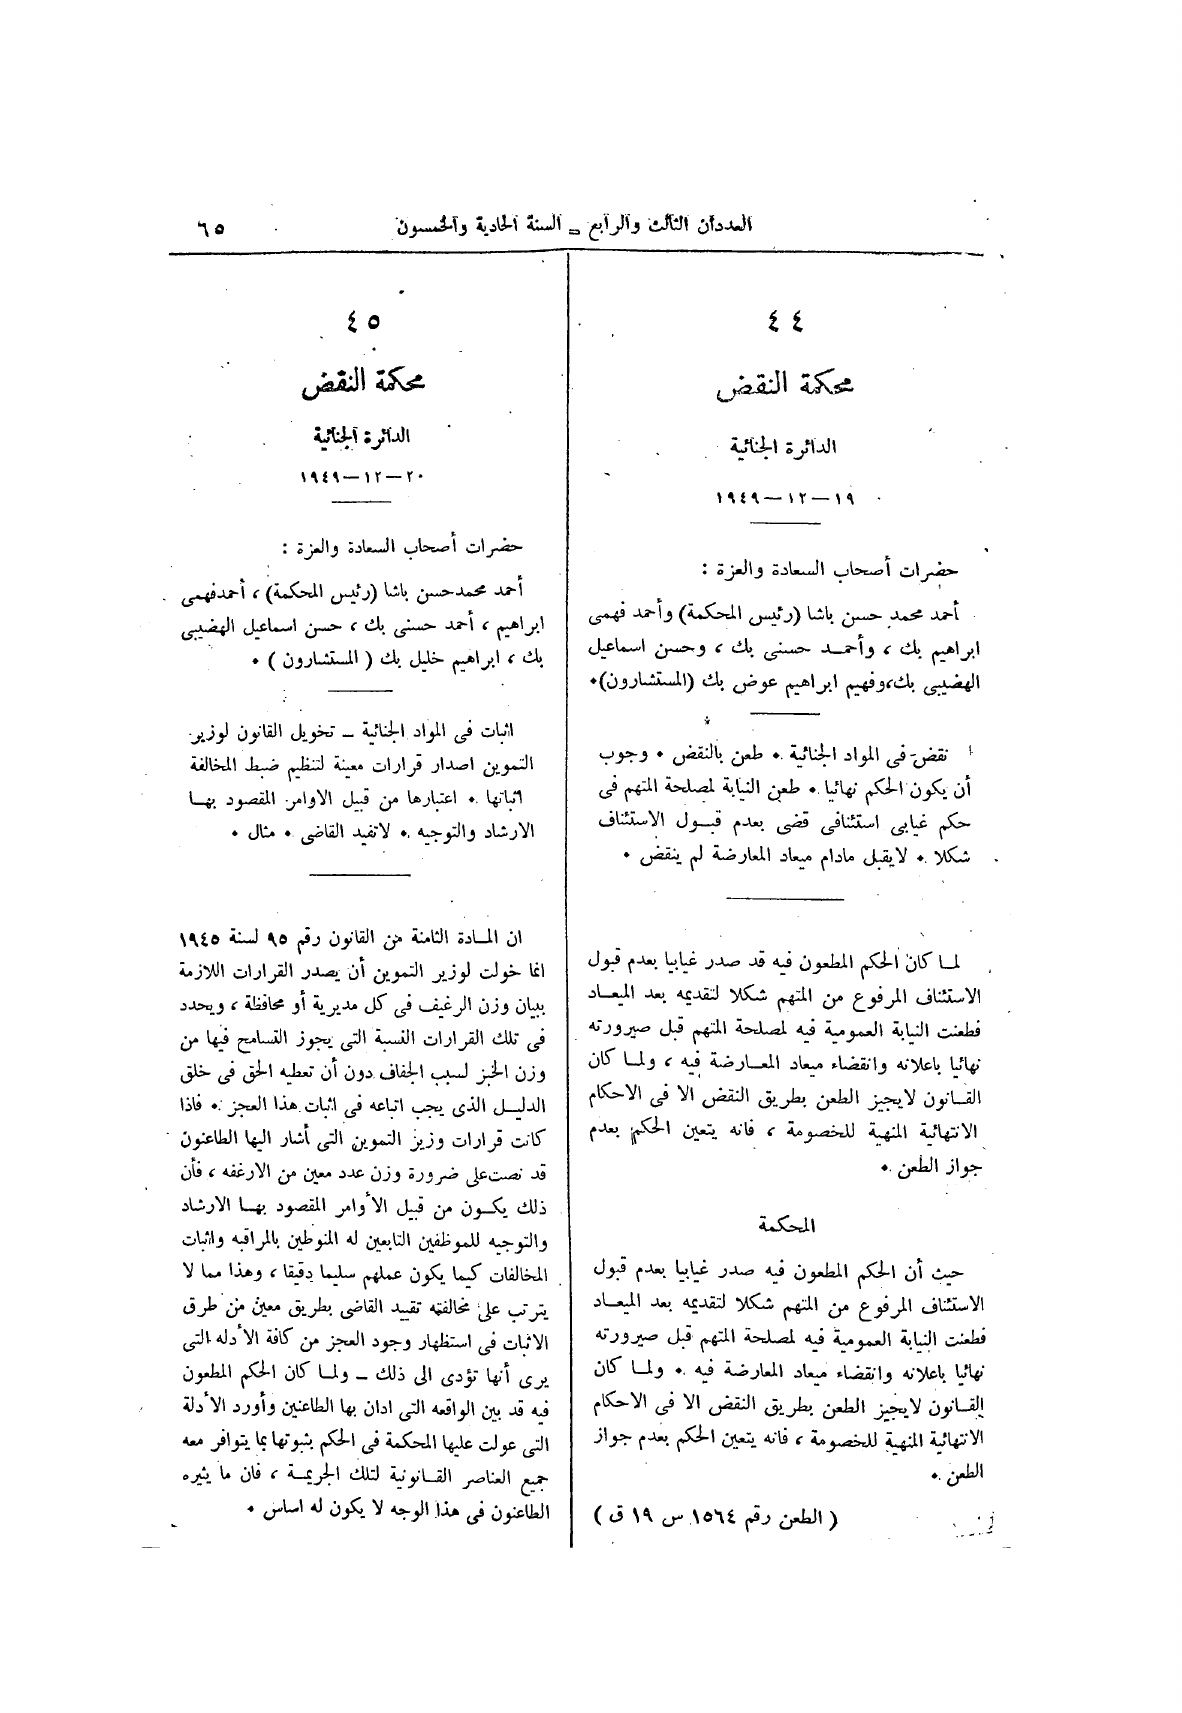 العددان الثالث والرابع ــ السنة الحادية والخمسون
٦٥
٤٤
محكمة النقض
الدائرة الجنائية
١٩ــ١٢ــ١٩٤٩
حضرات أصحاب السعادة والعزة :
أحمد محمد حسن باشا (رئيس المحكمة) وأحمد فهمى
ابراهيم بك ، وأحمـد حسنى بك ، وحسن اسماعيل
الهضيبى بك،وفهيم ابراهيم عوض بك (المستشارون)٠
نقض فى المواد الجنائية ٠ طعن بالنقض ٠ وجوب
أن يكون الحكم نهائيا ٠ طعن النيابة لمصلحة المتهم فى
حكم غيابى استئنافى قضى بعدم قبـول الاستئناف
شكلا ٠ لايقبل مادام ميعاد المعارضة لم ينقض ٠
لمـا كان الحكم المطعون فيه قد صدر غيابيا بعدم قبول
الاستئناف المرفوع من المتهم شكلا لتقديمه بعد الميعـاد
فطعنت النيابة العمومية فيه لمصلحة المتهم قبل صيرورته
نهائيا باعلانه وانقضاء ميعاد المعـارضة فيه ، ولمـا كان
القـانون لايجيز الطعن بطريق النقض الا فى الاحكام
الانتهائية المنهية للخصومة ، فانه يتعين الحكم بعدم
جواز الطعن ٠
المحكمة
حيث أن الحكم المطعون فيه صدر غيابيا بعدم قبول
الاستئناف المرفوع من المتهم شكلا لتقديمه بعد الميعـاد
فطعنت النيابة العمومية فيه لمصلحة المتهم قبل صيرورته
نهائيا باعلانه وانقضاء ميعاد المعارضة فيه ٠ ولمـا كان
القـانون لايجيز الطعن بطريق النقض الا فى الاحكام
الانتهائية المنهية للخصومة ، فانه يتعين الحكم بعدم جواز
الطعن ٠
( الطعن رقم ١٥٦٤ س ١٩ ق )
٤٥
محكمة النقض
الدائرة الجنائية
٢٠ــ١٢ــ١٩٤٩
حضرات أصحاب السعادة والعزة :
أحمد محمدحسن باشا (رئيس المحكمة) ، أحمدفهمى
ابراهيم ، أحمد حسنى بك ، حسن اسماعيل الهضيبى
بك ، ابراهيم خليل بك ( المستشارون ) ٠
اثبات فى المواد الجنائية ــ تخويل القانون لوزير
التموين اصدار قرارات معينة لتنظيم ضبط المخالفة
اثباتها ٠ اعتبارها من قبيل الاوامر المقصود بهـا
الارشاد والتوجيه ٠ لاتفيد القاضى ٠ مثال ٠
ان المـادة الثامنة من القانون رقم ٩٥ لسنة ١٩٤٥
انما خولت لوزير التموين أن يصدر القرارات اللازمة
ببيان وزن الرغيف فى كل مديرية أو محافظة ، ويحدد
فى تلك القرارات النسبة التى يجوز التسامح فيها من
وزن الخبز لسبب الجفاف دون أن تعطيه الحق فى خلق
الدليـل الذى يجب اتباعه فى اثبات هذا العجز ٠ فاذا
كانت قرارات وزير التموين التى أشار اليها الطاعنون
قد نصت على ضرورة وزن عدد معين من الارغفه ، فأن
ذلك يكـون من قبيل الأوامر المقصود بهـا الارشاد
والتوجيه للموظفين التابعين له المنوطين بالمراقبه واثبات
المخالفات كيما يكون عملهم سليما دقيقا ، وهذا مما لا
يترتب على مخالفته تقييد القاضى بطريق معين من طرق
الاثبات فى استظهار وجود العجز من كافة الأدله التى
يرى أنها تؤدى الى ذلك ــ ولمـا كان الحكم المطعون
فيه قد بين الواقعه التى ادان بها الطاعنين وأورد الأدلة
التى عولت عليها المحكمة فى الحكم بثبوتها بما يتوافر معه
جميع العناصر القـانونية لتلك الجريمـة ، فان ما يثيره
الطاعنون فى هذا الوجه لا يكون له اساس ٠